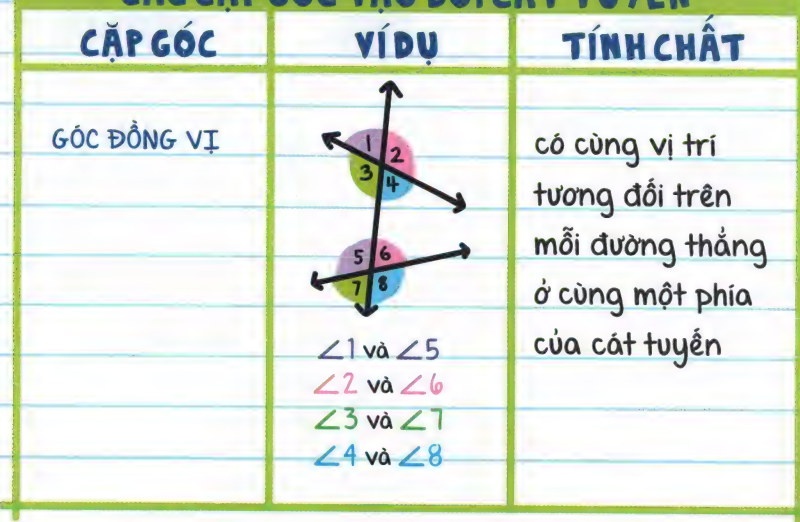 CẶP GÓC
VÍ DỤ
TÍNH CHẤT
GÓC ĐỒNG VỊ
1
2
3
4
5 6
7 8
∠1 và ∠5
∠2 và ∠6
∠3 và ∠7
∠4 và ∠8
có cùng vị trí
tương đối trên
mỗi đường thẳng
ở cùng một phía
của cát tuyến